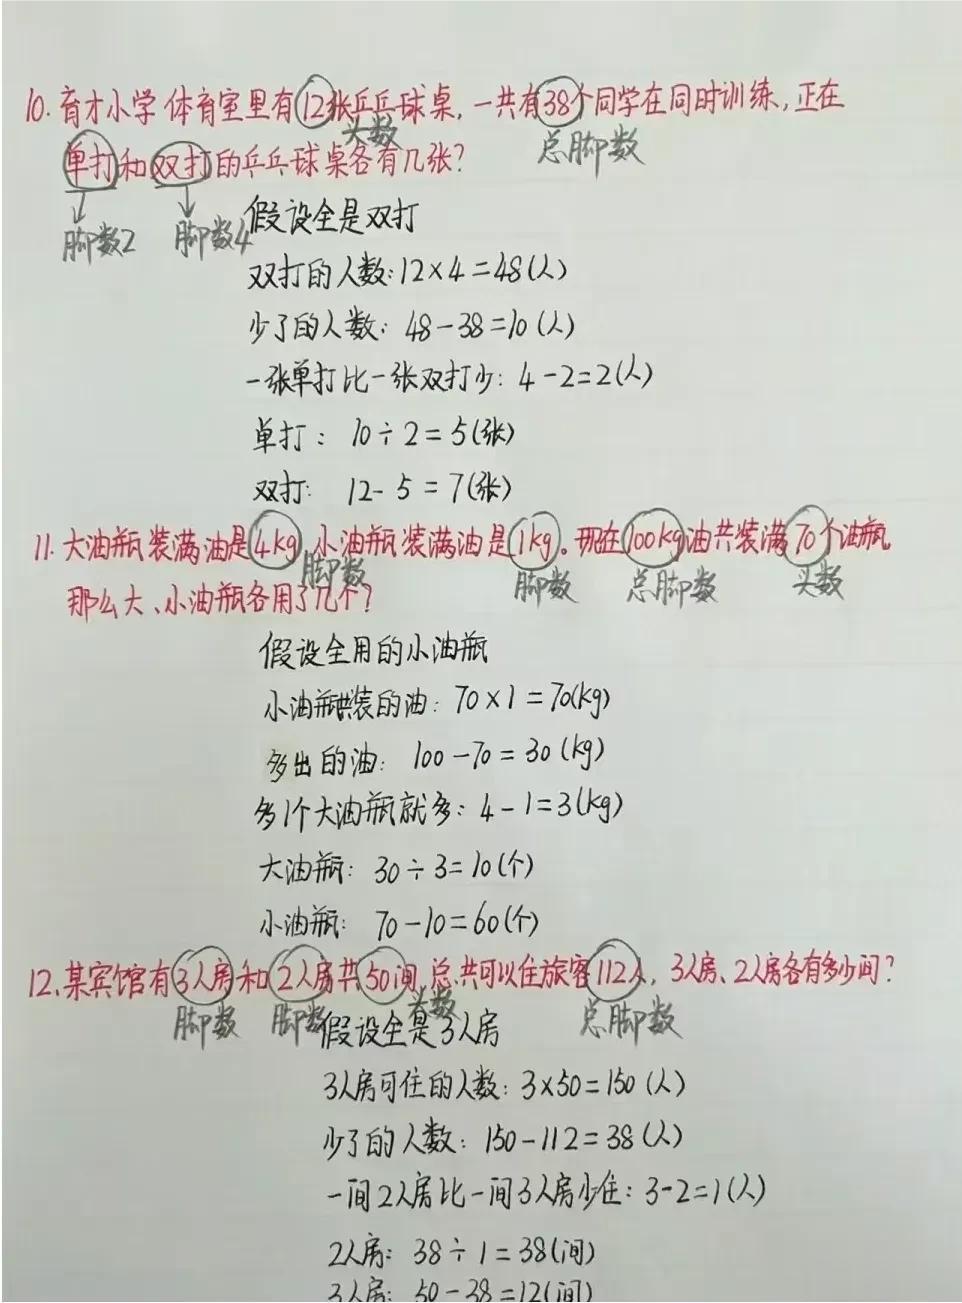 10. 育才小学体育室里有12张乒乓球桌，一共有38个同学在同时训练，正在
头数
总脚数
单打和双打的乒乓球桌各有几张？
脚数2
脚数4
假设全是双打
双打的人数：12×4=48(人)
少了的人数：48-38=10(人)
一张单打比一张双打少：4-2=2(人)
单打：10÷2=5(张)
双打：12-5=7(张)
11. 大油瓶装满油是4kg，小油瓶装满油是1kg。现在100kg油共装满70个油瓶。
脚数
脚数
总脚数
头数
那么大、小油瓶各用了几个？
假设全用的小油瓶
小油瓶装的油：70×1=70(kg)
多出的油：100-70=30(kg)
多1个大油瓶就多：4-1=3(kg)
大油瓶：30÷3=10(个)
小油瓶：70-10=60(个)
12、某宾馆有3人房和2人房共50间，总共可以住旅客112人，3人房、2人房各有多少间？
脚数
脚数
头数
总脚数
假设全是3人房
3人房可住的人数：3×50=150(人)
少了的人数：150-112=38(人)
一间2人房比一间3人房少住：3-2=1(人)
2人房：38÷1=38(间)
3人房：50-38=12(间)